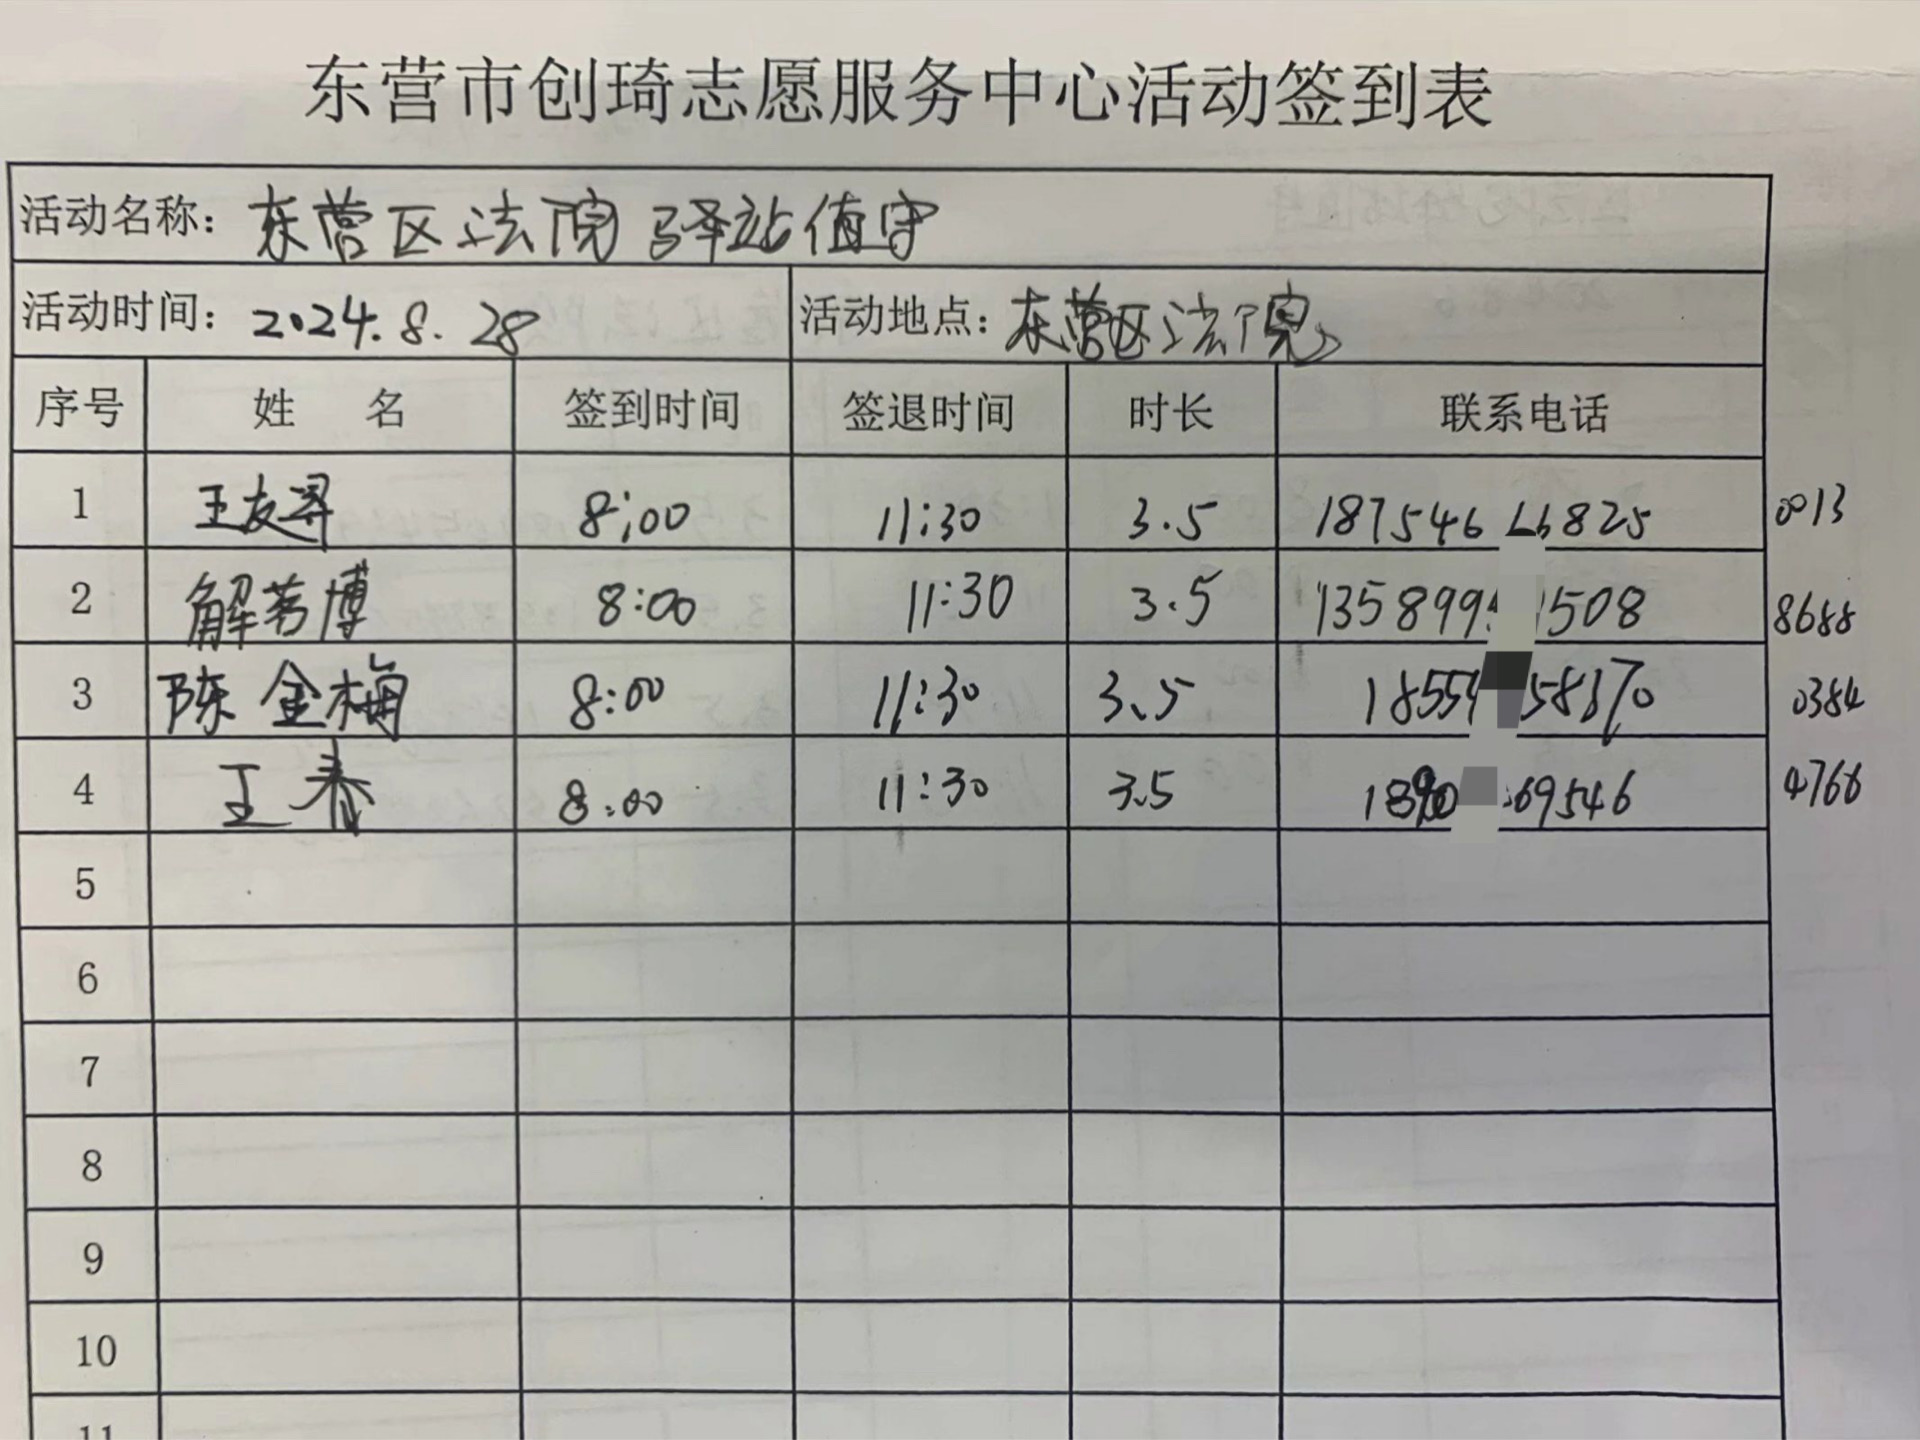 东营市创琦志愿服务中心活动签到表
活动名称：东营区法院驿站值守
活动时间：2024.8.28 活动地点：东营区法院
序号 姓 名 签到时间 签退时间 时长 联系电话
1 王友 8:00 11:30 3.5 187546 6825 0013
2 解 博 8:00 11:30 3.5 135899 508 8688
3 陈金梅 8:00 11:30 3.5 1855 58370 0384
4 王泰 8:00 11:30 3.5 1890 69546 4766
5
6
7
8
9
10
11